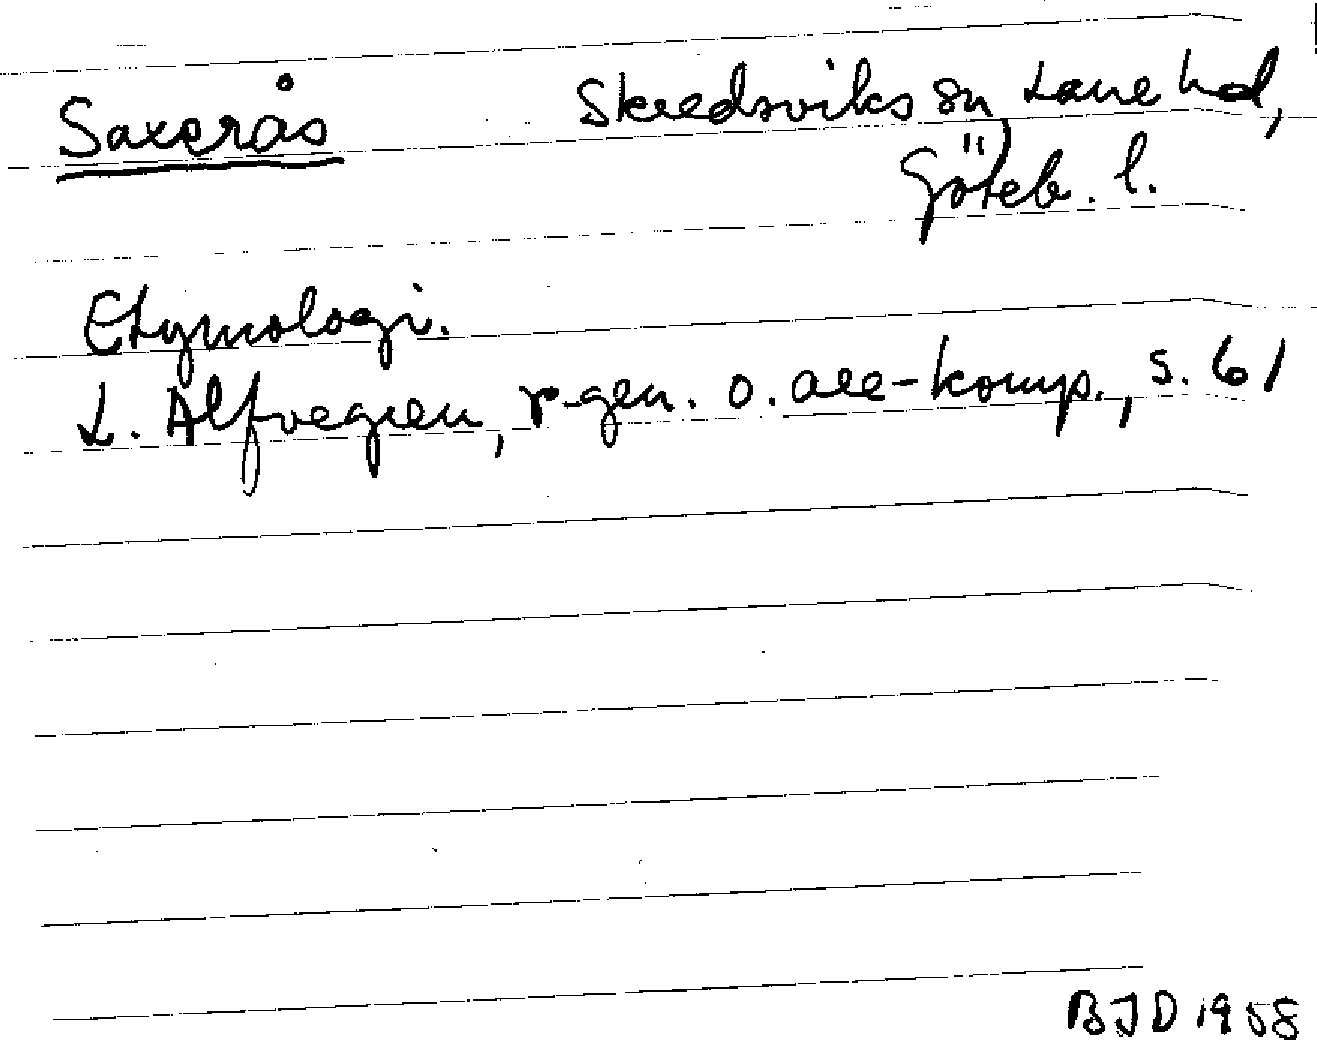 Saxerås Skredsviks sn Lane hd,
Göteb. l.
Etymologi.
L. Alfvegren, r-gen. o. are-komp., s. 61
BJD 1958